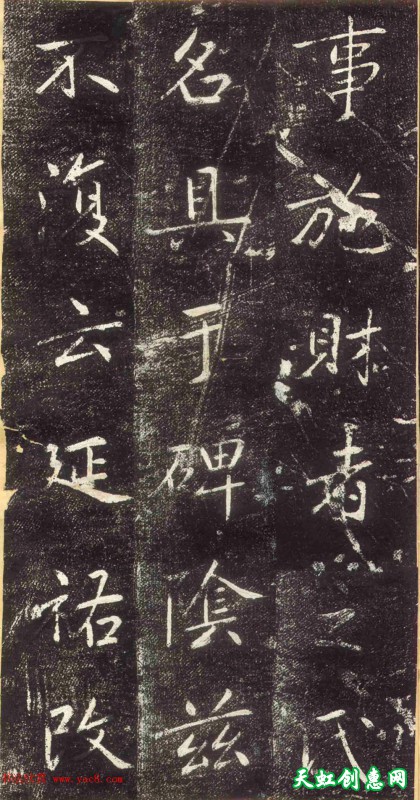 事施財者之氏
名具于碑陰兹
不復云延祐改
天虹创意网
www.yac8.com